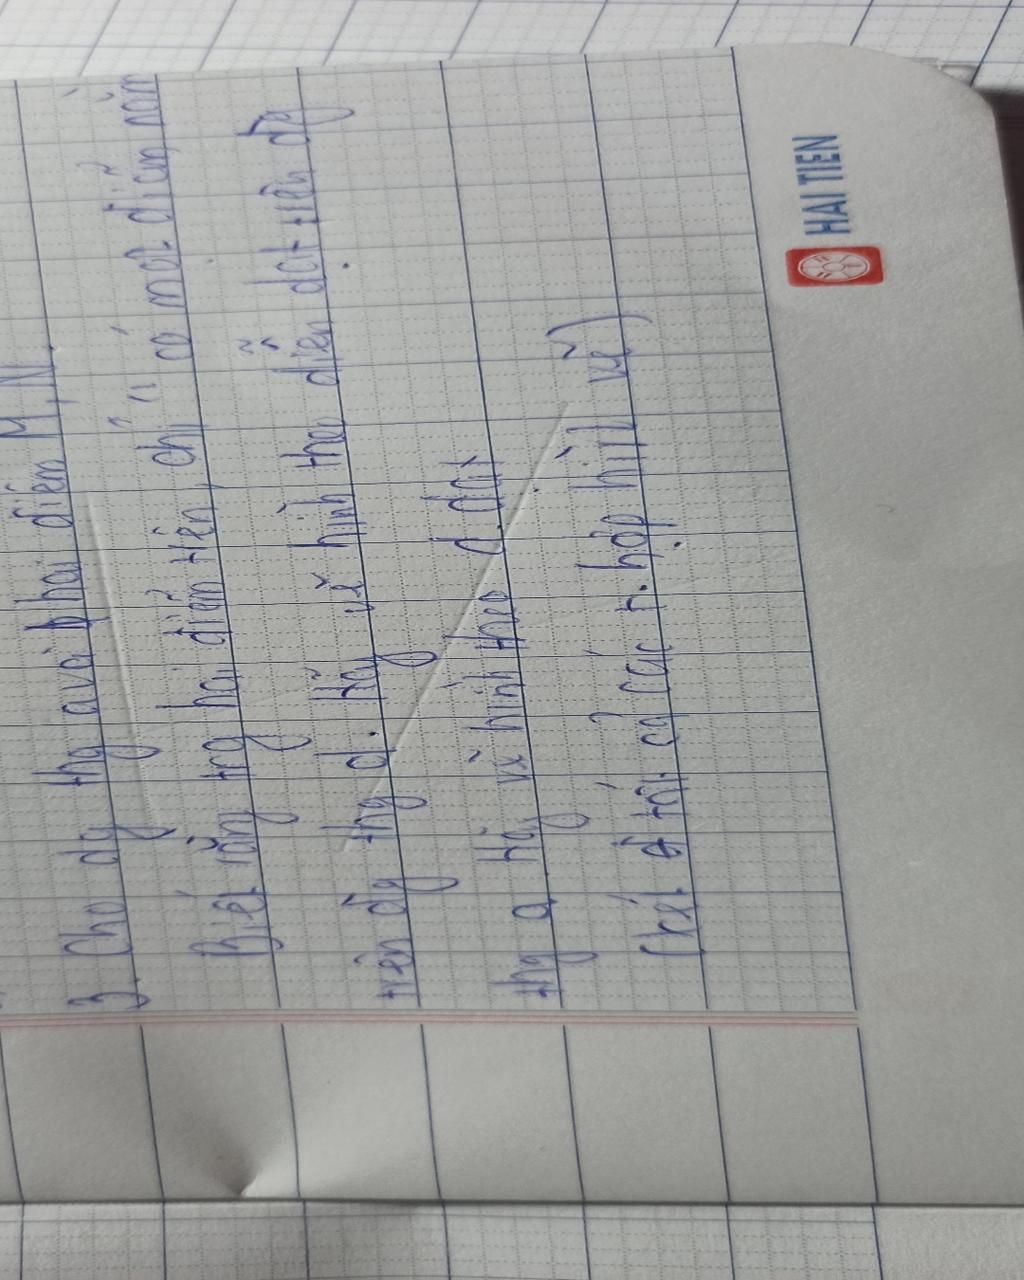 3. Cho đg thg a và hai điểm M, N.
Biết rằng trg hai điểm trên, chỉ có một điểm nằm
trên đg thg d. Hãy vẽ hình theo diễn đạt trên đg
thg a. Hãy vẽ hình theo d. đạt
(xét tất cả các t. hợp hình vẽ)
HAI TIEN